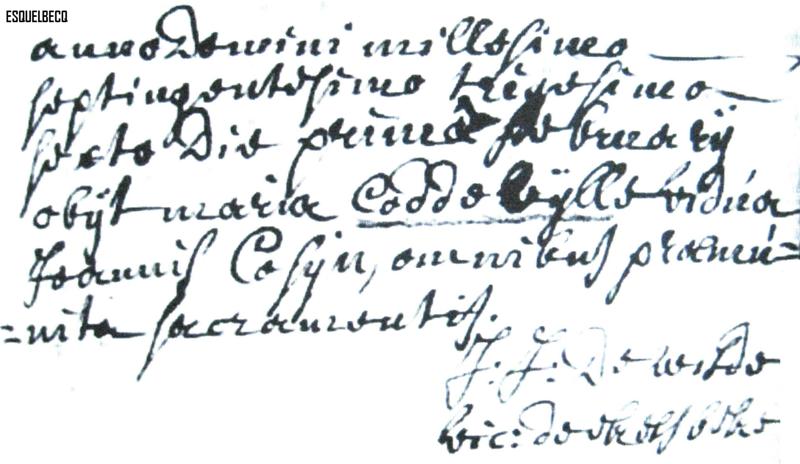 ESQUELBECQ
anno Domini millesimo
septingentesimo trigesimo
sexto Die prima februarÿ
obÿt maria Coddevÿlle vidúa
Joannis Cosÿn, omnibus præmú=
=nita sacramentis.
J. J. De wilde
vic: